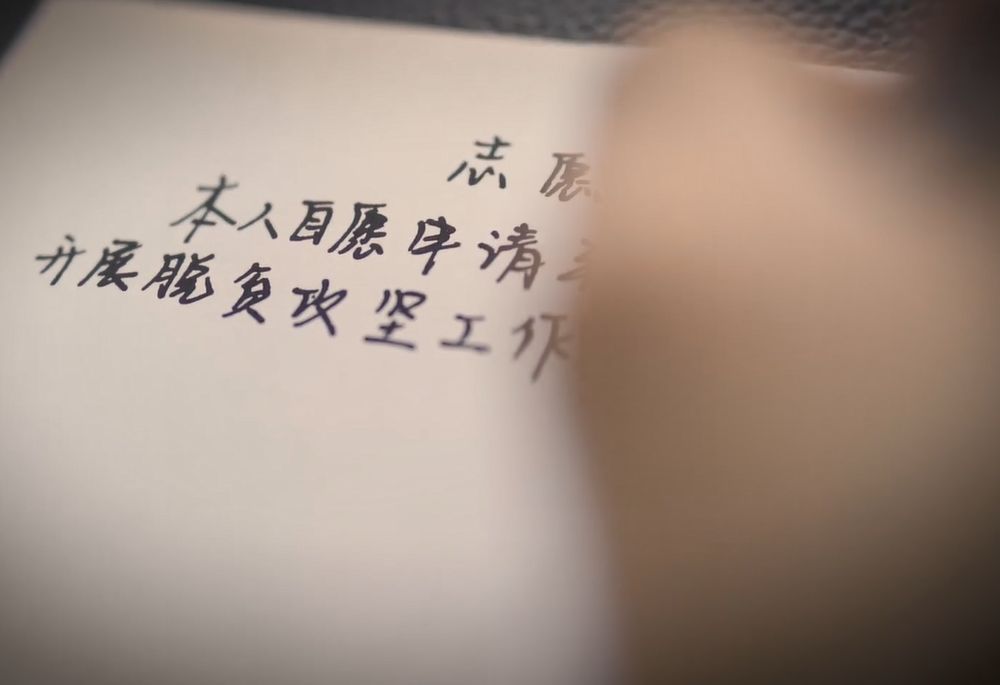 志愿
本人自愿申请
开展脱贫攻坚工作